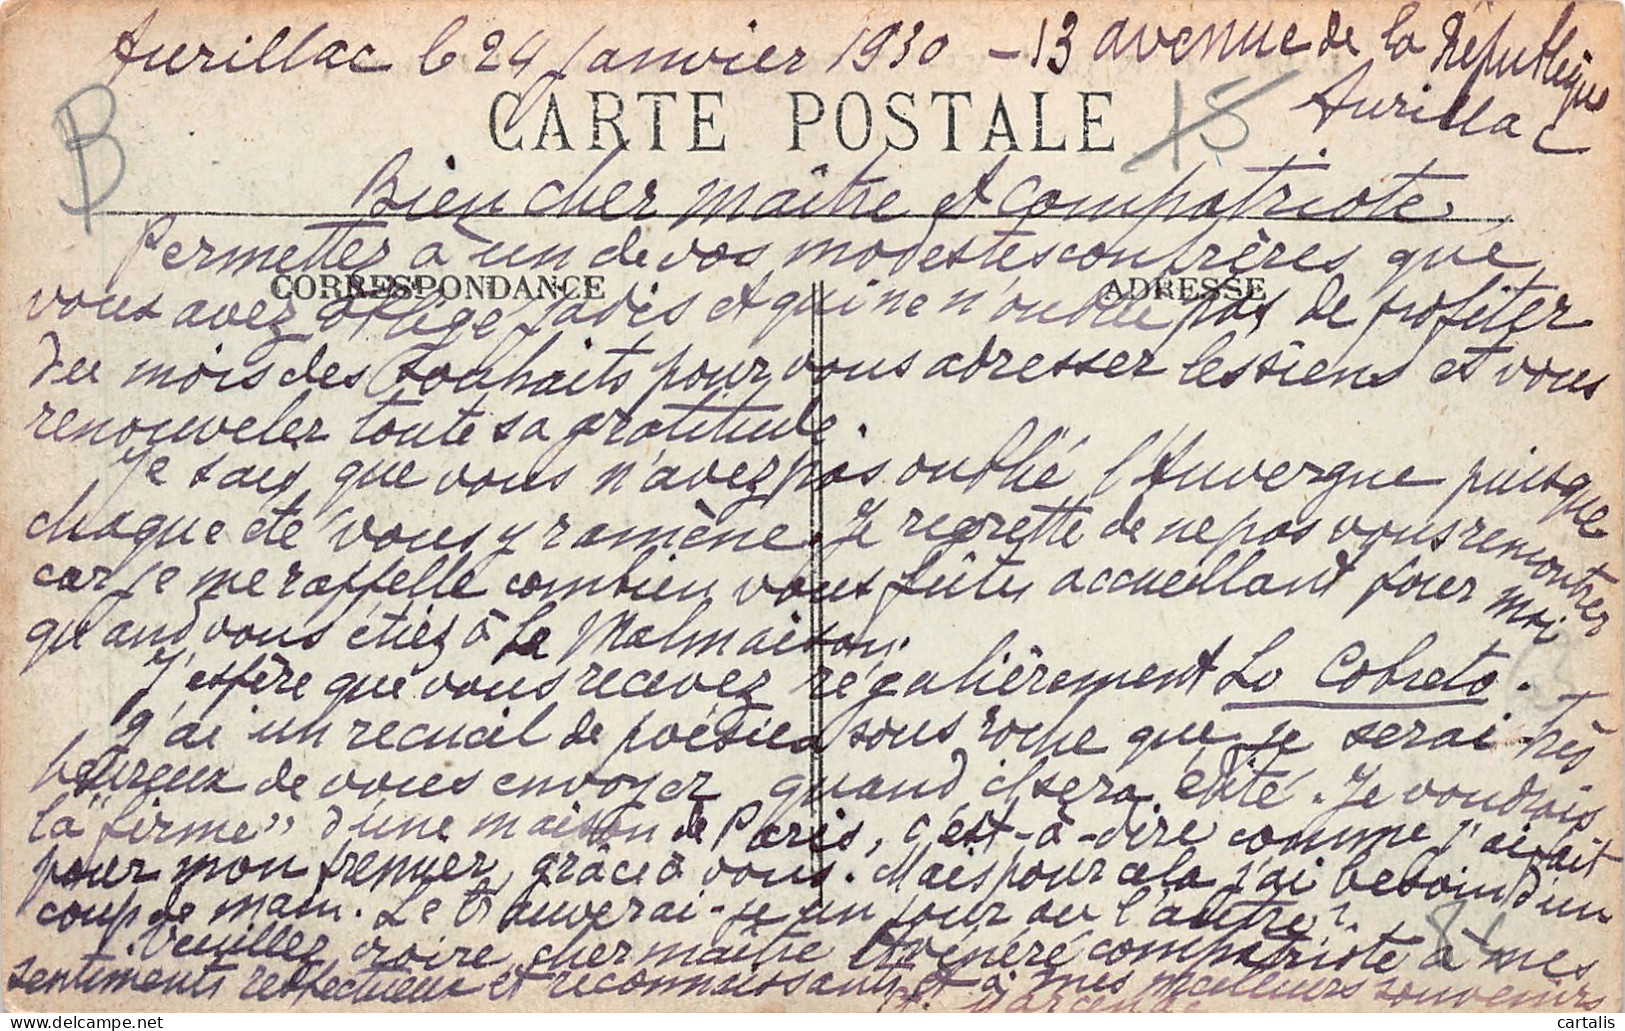 Aurillac le 24 Janvier 1930 – 13 avenue de la République
Aurillac
B
CARTE POSTALE
15
Bien cher maître et compatriote,
Permettez à un de vos modestes confrères que
CORRESPONDANCE
ADRESSE
vous avez obligé jadis et qui ne n'oublie pas de profiter
du mois des souhaits pour vous adresser les siens et vous
renouveler toute sa gratitude.
Je sais que vous n'avez pas oublié l'Auvergne puisque
chaque été vous y ramène. Je regrette de ne pas vous rencontrer
car je me rappelle combien vous fûtes accueillant pour moi
quand vous étiez à la Malmaison.
J'espère que vous recevez régulièrement Lo Cobreto.
J'ai un recueil de poésies sous roche que je serai très
heureux de vous envoyer quand il sera édité. Je voudrais
la "firme" d'une maison de Paris, c'est-à-dire comme j'ai fait
pour mon premier, grâce à vous. Mais pour cela j'ai besoin d'un
coup de main. Le trouverai-je un jour ou l'autre?
Veuillez croire, cher maître et vénéré compatriote à mes
sentiments respectueux et reconnaissants et à mes meilleurs souvenirs
cartalis
www.delcampe.net